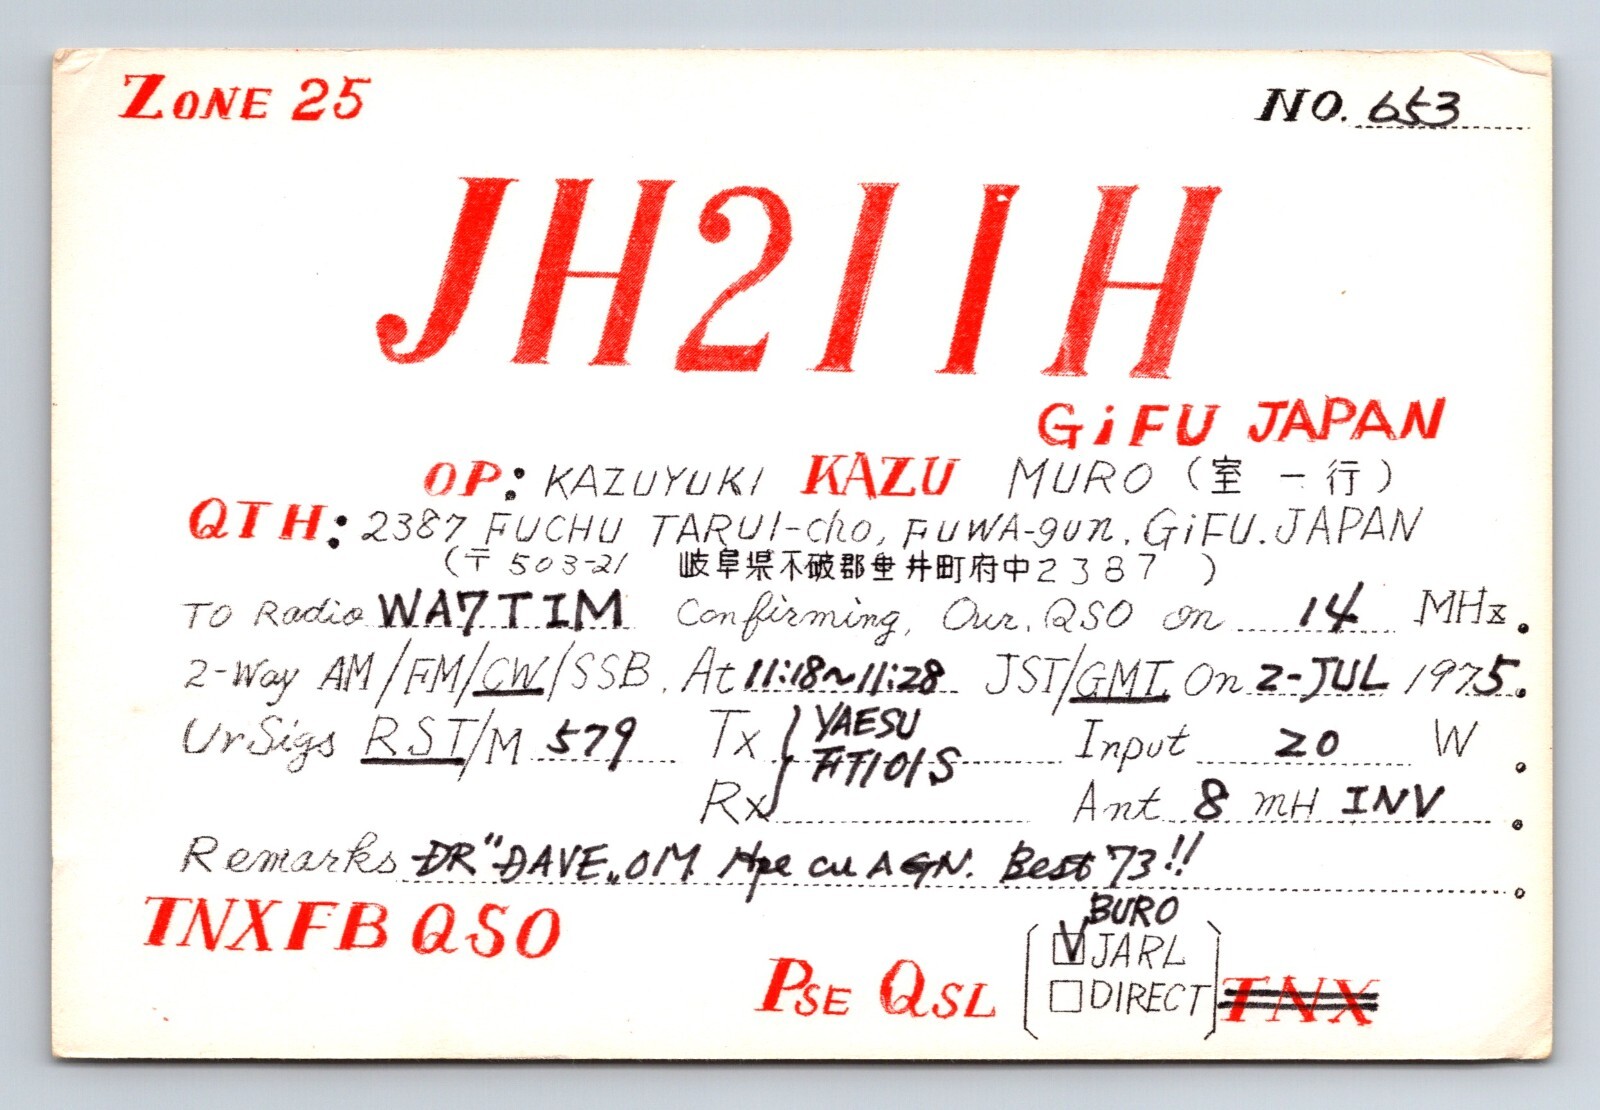 ZONE 25 NO. 653
JH2IIH
GiFU JAPAN
OP: KAZUYUKI KAZU MURO (室 一行)
QTH: 2387 FUCHU TARUI-cho, FUWA-gun, GiFU. JAPAN
(〒503-21 岐阜県不破郡垂井町府中2387)
TO Radio WA7TIM Confirming, Our, QSO on 14 MHz.
2-Way AM/FM/CW/SSB. At 11:18~11:28 JST/GMT On 2-JUL 1975.
Ur Sigs RST/M 579 Tx YAESU Input 20 W.
FT101S
Rx Ant 8 mH INV.
Remarks DR "DAVE„ OM. Hpe cu AGN. Best 73!!
BURO
TNX FB QSO PSE QSL [☑ JARL
☐ DIRECT] TNX